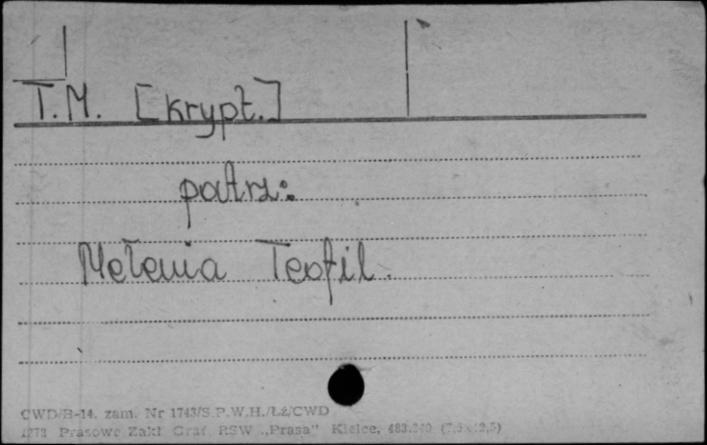 T.M. [krypt.]
patrz:
Mełenia Teofil.
CWD/B-14. zam. Nr 1743/S.P.W.H./Łż/CWD
Prasowe Zakł. Graf. RSW „Prasa" Kielce,